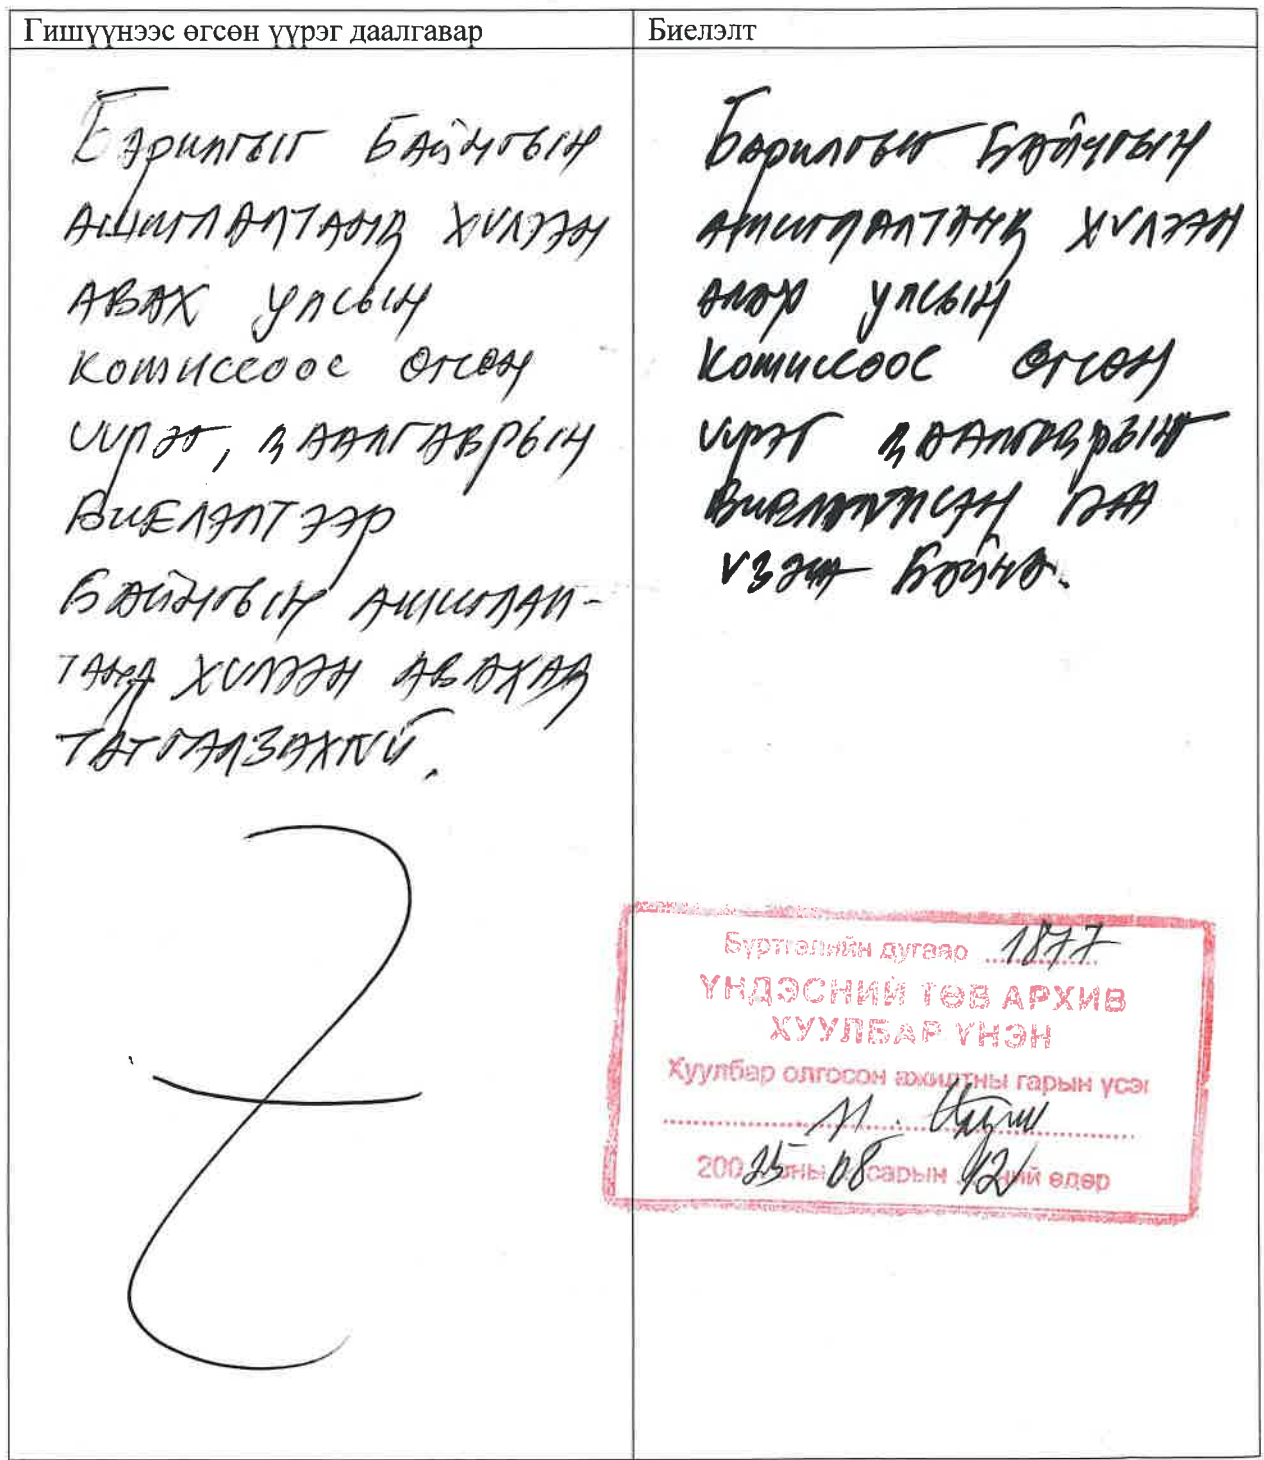 Гишүүнээс өгсөн үүрэг даалгавар
Барилгыг Байнгын
ашиглалтанд хүлээн
авах улсын
комиссоос өгсөн
үүрэг, даалгаврын
Биелэлтээр
Байнгын ашиглал-
танд хүлээн авахад
татгалзахгүй.
Биелэлт
Барилгыг Байнгын
ашиглалтанд хүлээн
улсын
комиссоос өгсөн
үүрэг даалгаврыг
Биелүүлсэн гэж
үзэж Байна.
Бүртгэлийн дугаар 1877
ҮНДЭСНИЙ ТӨВ АРХИВ
ХУУЛБАР ҮНЭН
Хуулбар олгосон ажилтны гарын үсэг
200 25 оны 08 сарын 12 ний өдөр